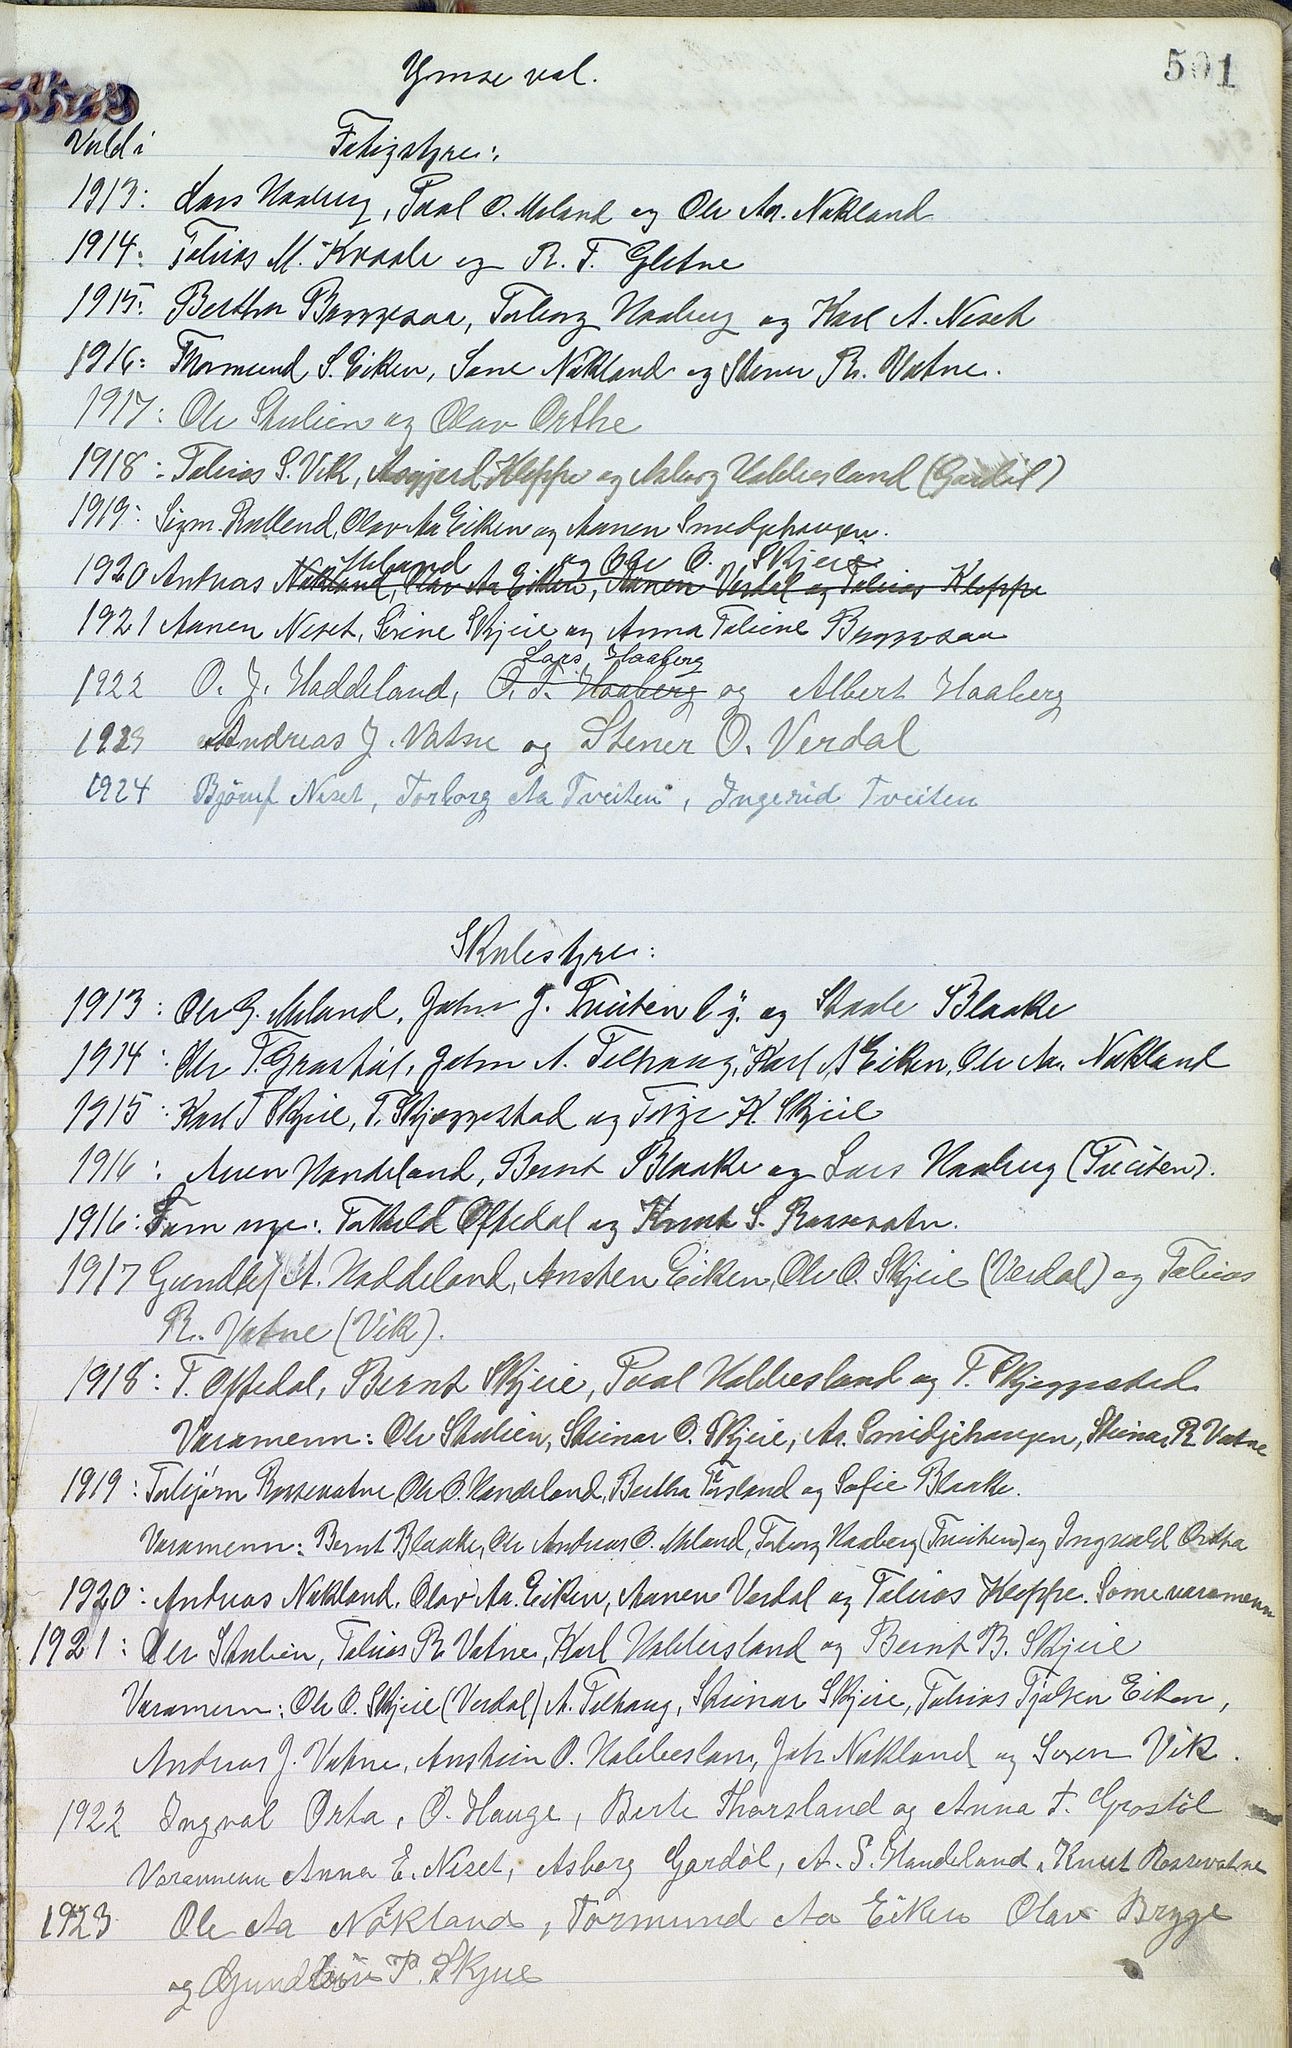 501
Ymse val.
Vald i Fatigstyre:
1913: Lars Haaberg, Paal O. Meland og Ole Aa. Nakland
1914: Tobias M. Kvaale og R. T. Gletne
1915: Bertha Bryggesaa, Torborg Haaberg og Karl A. Neset
1916: Thormund S. Eiken, Sane Nakland og Stener R. Vatne.
1917: Ole Stulien og Olav Ortke
1918: Tobias S. Vik, Asgjerd Kleppe og Asborg Haddesland (Gardöl)
1919: Sigm. Rullend, Olav Aa Eiken og Aanen Smidjehaugen.
Meland og Ole O. Skjeie
1920 Andreas Nakland, Olav Aa Eiken, Aanen Verdal og Tobias Kleppe
1921 Aanen Neset, Serine Skjeie og Anna Toline Bryggesaa
Lars Haaberg
1922 O. J. Haddeland, O. T. Haaberg og Albert Haaberg
1923 Andreas J. Vatne og Stener O. Verdal
1924 Björulf Neset, Torborg Aa Tveiten, Ingerid Tveiten
Skulestyre:
1913: Ole G. Meland, John J. Tveiten l. y. og Staale Blaake
1914: Ole T. Grastöl, John A. Telhaug, Karl A Eiken, Ole Aa. Nakland
1915: Karl T Skjeie, T. Skjeggestad og Torje K. Skjeie
1916: Anen Handeland, Bernt Blaake og Lars Haaberg (Tveiten).
1916: Fem nye: Torkeld Oftedal og Knut S. Rossevatn.
1917 Gundleif A. Haddeland, Ansten Eiken, Ole O. Skjeie (Verdal) og Tobias
R. Vatne (Vik).
1918: T. Oftedal, Bernt Skjeie, Paal Haddesland og T. Skjeggestad
Varamenn: Ole Stulien, Steinar O. Skjeie, Aa. Smidjehaugen, Steinar R Vatne
1919: Torbjörn Rossevatne, Ole O. Handeland, Bertha Torsland og Sofie Blaake.
Varamenn: Bernt Blaake, Ole Andreas O. Meland, Torborg Haaberg (Tveiten) og Ingvald Ortha
1920: Andreas Nakland, Olav Aa. Eiken, Aanen Verdal og Tobias Kleppe. Some varamenn
1921: Ole Stulien, Tobias R Vatne, Karl Haddesland og Bernt B. Skjeie
Varamenn: Ole O. Skjeie (Verdal) A. Telhaug, Steinar Skjeie, Tobias Eiken,
Andreas J. Vatne, Anstein O. Haddeslan, Joh Nakland og Soren Vik.
1922 Ingval Orta, O. Hauge, Berte Thorsland og Anna T. Grostöl
Varamenn Anna E. Neset, Asborg Gardöl, A. S. Handeland, Knut Rossevatne
1923 Ole Aa Nökland, Tormund Aa Eiken Olav Brygge
og P. Skjeie